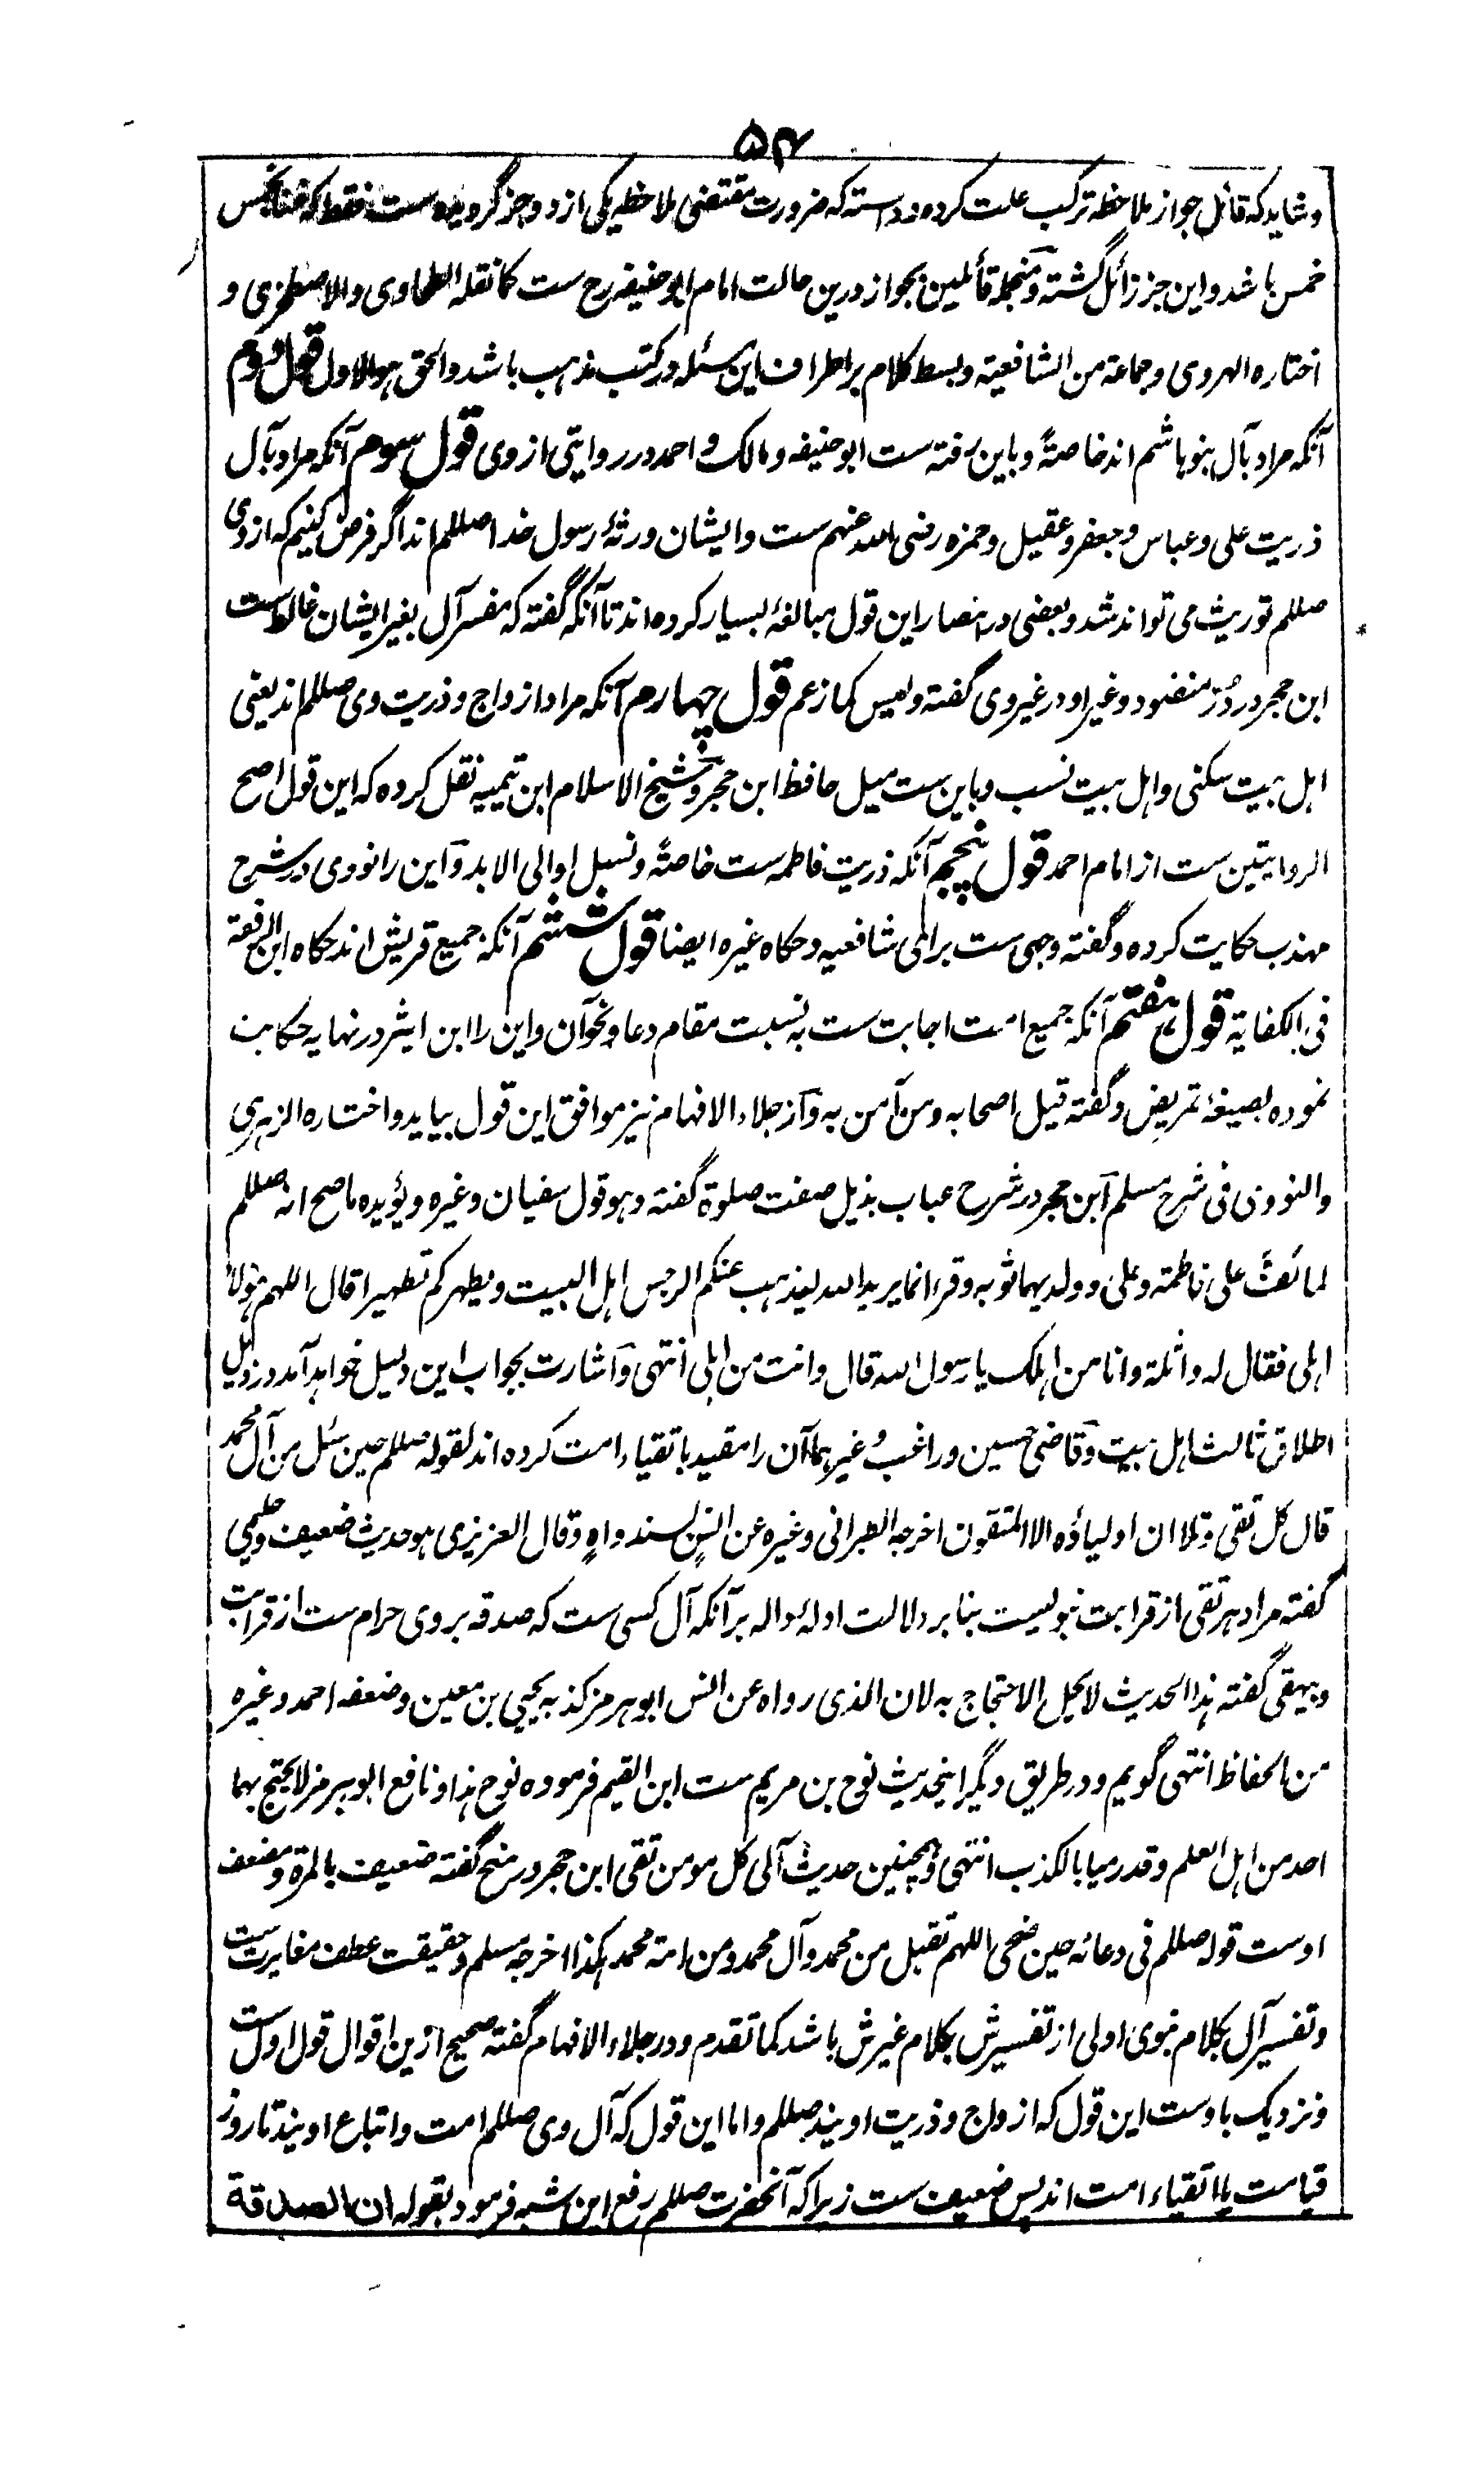 ۵۴
و شاید که قائل جواز ملاحظه ترکب علت کرده و دانسته که ضرورت مقتضی ملاحظه یکی از دو جزء گردیده ست فقط که غنا بخمس
خمس باشد و این جزء زائل گشته و منجمله قائلین بجواز درین حالت امام ابو حنیفه رح ست کما نقله الطحاوی والاصطخری و
اختاره الهروی و جماعة من الشافعیة و بسط کلام بر اطراف این مسئله در کتب مذهب باشد والحق هوالاول قول دوم
آنکه مراد بآل بنو هاشم اند خاصةً و باین رفته ست ابو حنیفه و مالک و احمد در روایتی از وی قول سوم آنکه مراد بآل
ذریت علی و عباس و جعفر و عقیل و حمزه رضی الله عنهم ست و ایشان ورثهٔ رسول خدا صللم اند اگر فرض کنیم که از وی
صللم توریث می تواند شد و بعضی در انتصار این قول مبالغهٔ بسیار کرده اند تا آنکه گفته که مفسر آل بغیر ایشان غالط ست
ابن حجر در دُرّ منضود و غیر او در غیر وی گفته و لیس کما زعم قول چهارم آنکه مراد ازواج و ذریت وی صللم اند یعنی
اهل بیت سکنی و اهل بیت نسب و باین ست میل حافظ ابن حجر و شیخ الاسلام ابن تیمیه نقل کرده که این قول اصح
الروایتین ست از امام احمد قول پنجم آنکه ذریت فاطمه ست خاصةً و نسل او الی الابد و این را نووی در شرح
مهذب حکایت کرده و گفته وجهی ست برای شافعیه و حکاه غیره ایضا قول ششم آنکه جمیع قریش اند حکاه ابن الرفعة
فی الکفایة قول هفتم آنکه جمیع امت اجابت ست به نسبت مقام دعا و نحو آن و این را ابن اثیر در نهایه حکایت
نموده بصیغهٔ تمریض و گفته قیل اصحابه و من آمن به و از جلاء الافهام نیز موافق این قول بیاید و اختاره الزهری
والنووی فی شرح مسلم ابن حجر در شرح عباب بذیل صفت صلوة گفته و هو قول سفیان و غیره و یؤیده ما صح انه صللم
لما لفّ علی فاطمة و علی و ولدیهما ثوبه و قرء انما یرید الله لیذهب عنکم الرجس اهل البیت و یطهرکم تطهیرا قال اللهم هؤلاء
اهلی فقال له واثلة و انا من اهلک یا رسول الله قال و انت من اهلی انتهی و اشارت بجواب این دلیل خواهد آمد در ذیل
اطلاق ثالث اهل بیت و قاضی حسین و راغب و غیرهما آن را مقید باتقیاء امت کرده اند لقوله صللم حین سئل من آل محمد
قال کل تقی و تلا ان اولیاؤه الا المتقون اخرجه الطبرانی و غیره عن انسٍ بسند واهٍ و قال العزیزی هو حدیث ضعیف و حلیمی
گفته مراد هر تقی از قرابت نبویست بنا بر دلالت ادلهٔ داله برآنکه آل کسی ست که صدقه بر وی حرام ست از قرابت
و بیهقی گفته هذا الحدیث لایحل الاحتجاج به لان الذی رواه عن انس ابو هرمز کذبه یحیی بن معین و ضعفه احمد و غیره
من الحفاظ انتهی گویم و در طریق دیگر اینحدیث نوح بن مریم ست ابن القیم فرموده نوح هذا و نافع ابو هرمز لا یحتج بهما
احد من اهل العلم و قد رمیا بالکذب انتهی و همچنین حدیث آلی کل مومن تقی ابن حجر در منح گفته ضعیف بالمرة و مضعف
اوست قوله صللم فی دعائه حین ضحی اللهم تقبل من محمد و آل محمد و من امة محمد هکذا اخرجه مسلم و حقیقت عطف مغایرت ست
و تفسیر آل بکلام نبوی اولی از تفسیرش بکلام غیرش باشد کما تقدم و در جلاء الافهام گفته صحیح ازین اقوال قول اول ست
و نزدیک باوست این قول که ازواج و ذریت اویند صللم و اما این قول که آل وی صللم امت و اتباع اویند تا روز
قیامت یا اتقیاء امت اند پس ضعیف ست زیرا که آنحضرت صللم رفع این شبه فرمود بقوله ان الصدقة